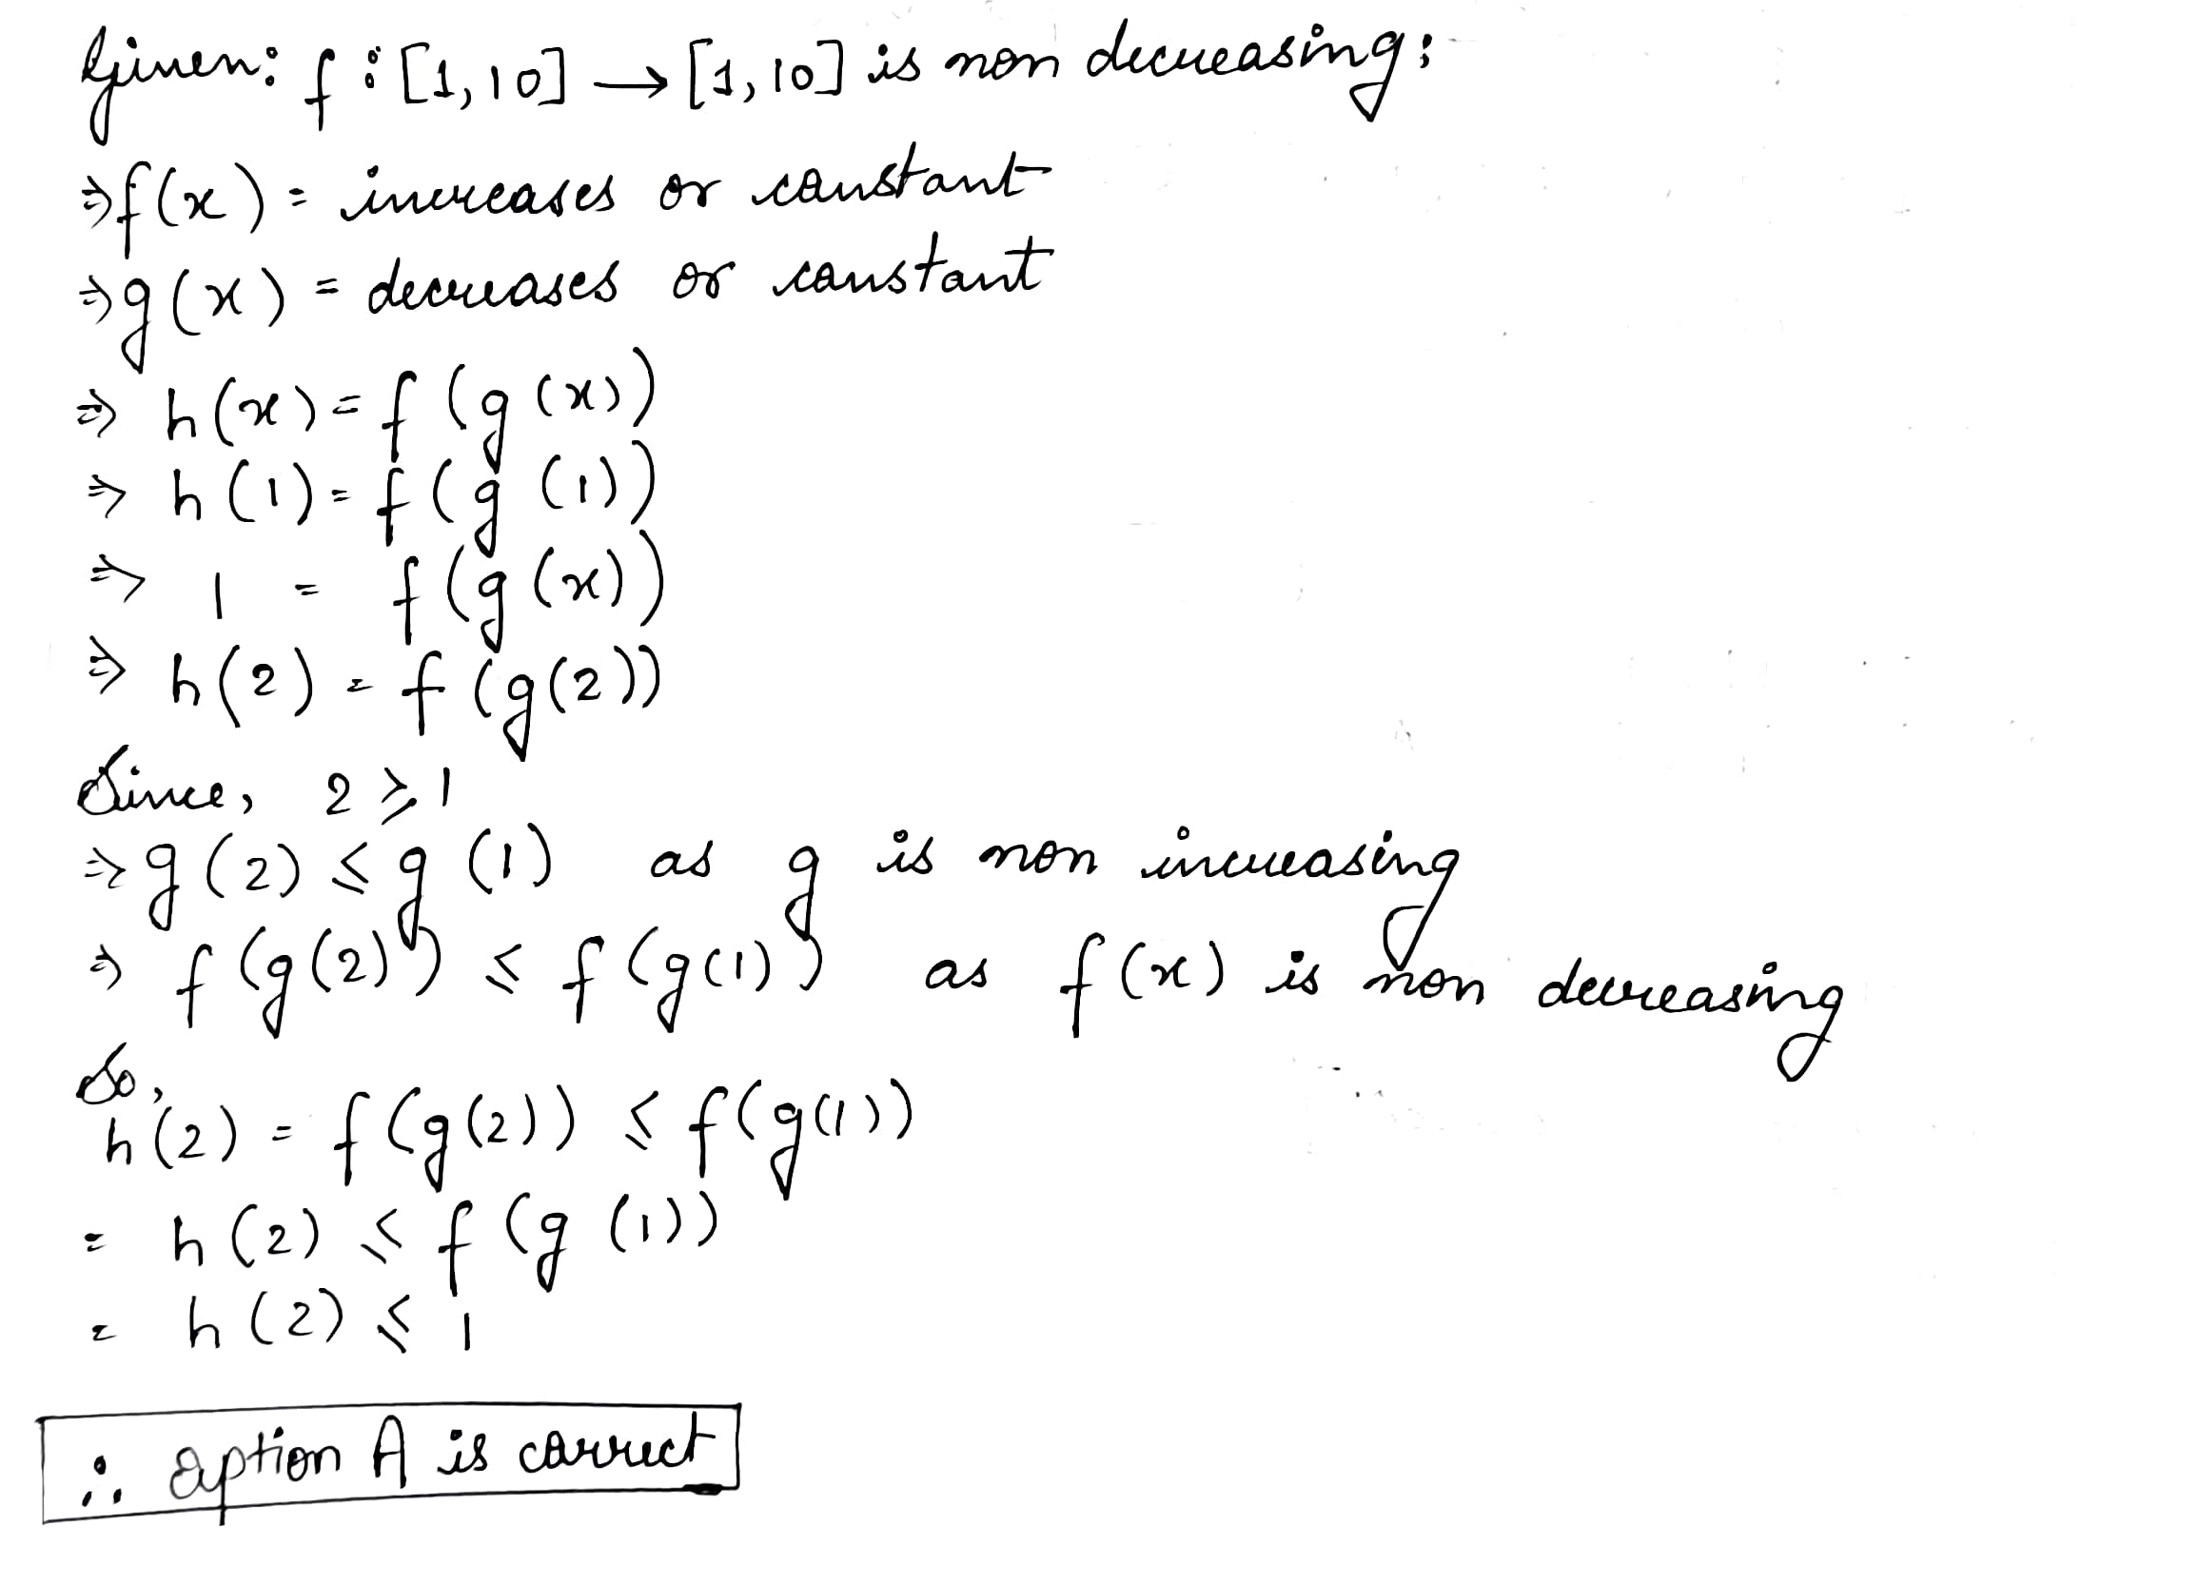 Given: f : [1,10] → [1,10] is non decreasing:
⇒ f(x) = increases or constant
⇒ g(x) = decreases or constant
⇒ h(x) = f(g(x))
⇒ h(1) = f(g(1))
⇒ 1 = f(g(x))
⇒ h(2) = f(g(2))
Since, 2 ⩾ 1
⇒ g(2) ⩽ g(1) as g is non increasing
⇒ f(g(2)) ⩽ f(g(1)) as f(x) is non decreasing
So,
h(2) = f(g(2)) ⩽ f(g(1))
= h(2) ⩽ f(g(1))
= h(2) ⩽ 1
∴ option A is correct